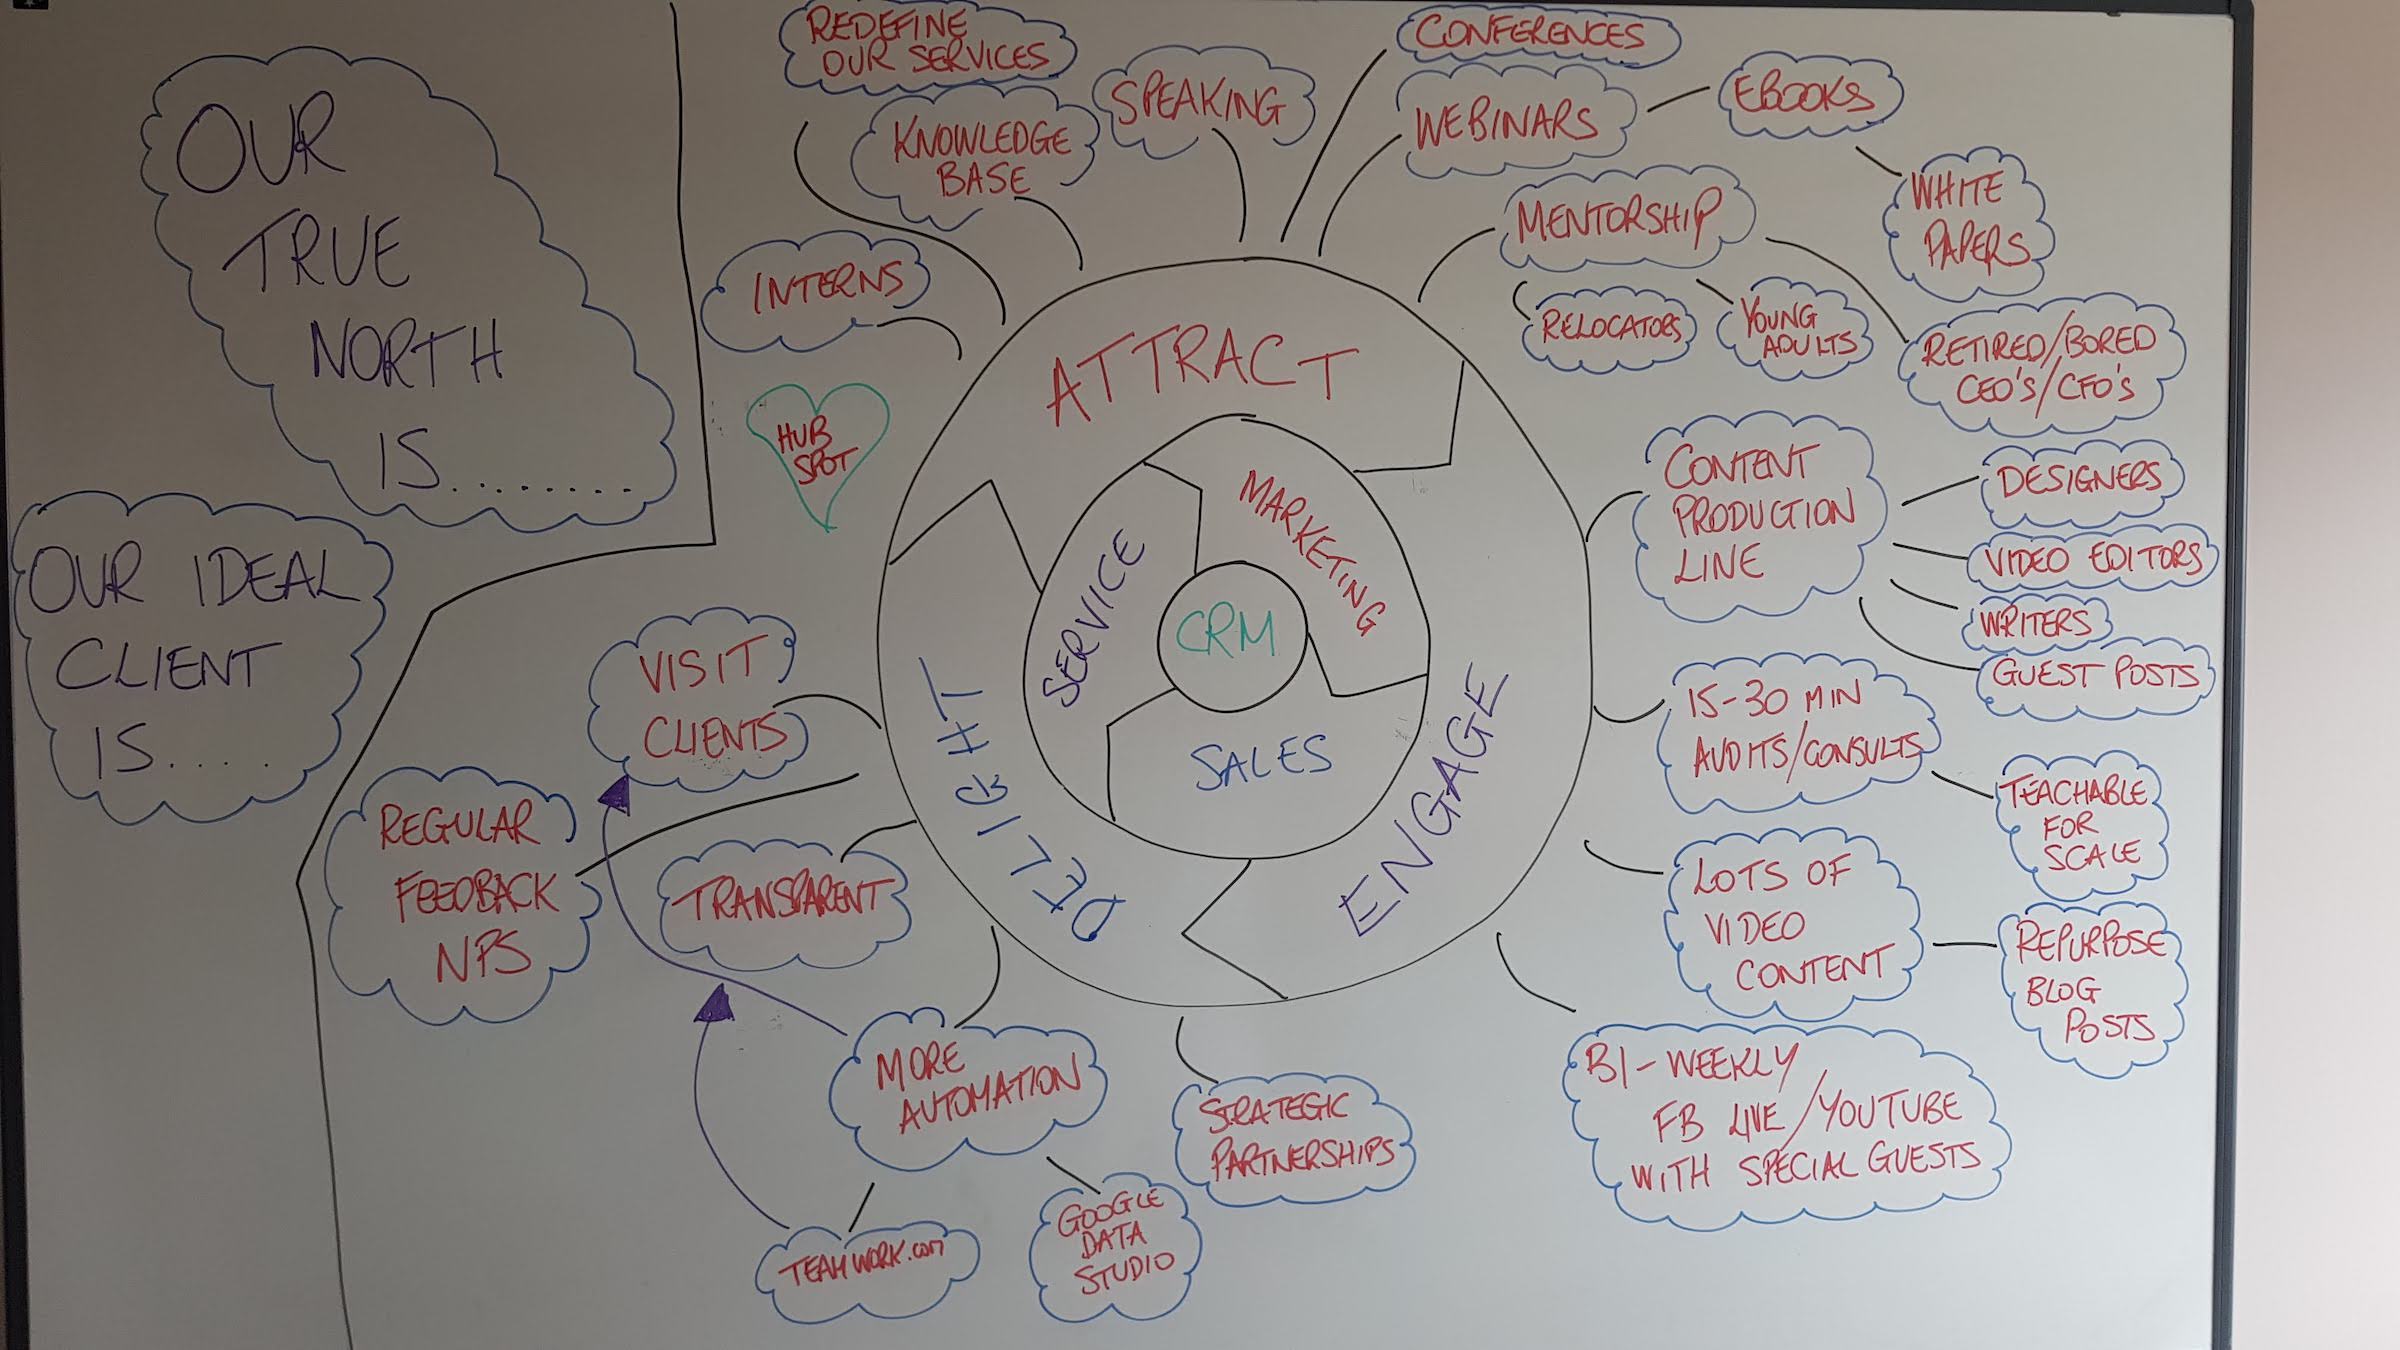 OUR
TRUE
NORTH
IS........
OUR IDEAL
CLIENT
IS....
REDEFINE
OUR SERVICES
KNOWLEDGE
BASE
SPEAKING
CONFERENCES
WEBINARS
EBOOKS
WHITE
PAPERS
MENTORSHIP
RELOCATORS
YOUNG
ADULTS
RETIRED/BORED
CEO'S/CFO'S
INTERNS
HUB
SPOT
ATTRACT
ENGAGE
DELIGHT
MARKETING
SALES
SERVICE
CRM
CONTENT
PRODUCTION
LINE
DESIGNERS
VIDEO EDITORS
WRITERS
GUEST POSTS
15-30 MIN
AUDITS/CONSULTS
TEACHABLE
FOR
SCALE
LOTS OF
VIDEO
CONTENT
REPURPOSE
BLOG
POSTS
BI-WEEKLY
FB LIVE/YOUTUBE
WITH SPECIAL GUESTS
STRATEGIC
PARTNERSHIPS
VISIT
CLIENTS
REGULAR
FEEDBACK
NPS
TRANSPARENT
MORE
AUTOMATION
TEAMWORK.com
GOOGLE
DATA
STUDIO